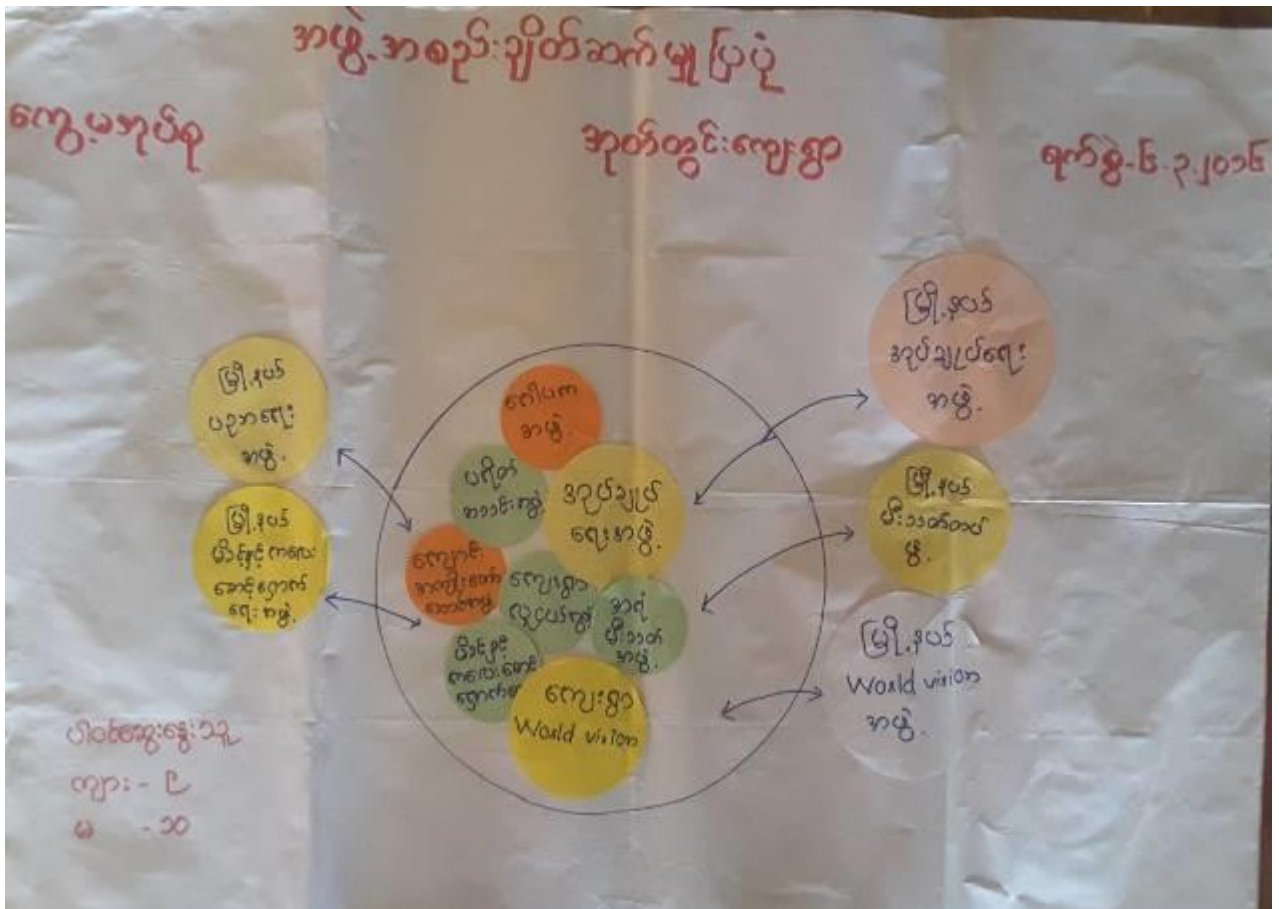 အဖွဲ့အစည်းချိတ်ဆက်မှုပြပုံ
ကွေ့မအုပ်စု
အုတ်တွင်းကျေးရွာ
ရက်စွဲ-၆.၃.၂၀၁၆
မြို့နယ်
ပညာရေး
အဖွဲ့
မြို့နယ်
မိခင်နှင့်ကလေး
စောင့်ရှောက်
ရေးအဖွဲ့
ဂေါပက
အဖွဲ့
ပရိတ်
အသင်းအဖွဲ့
အုပ်ချုပ်
ရေးအဖွဲ့
ကျောင်း
အကျိုးတော်
ဆောင်အဖွဲ့
ကျေးရွာ
လူငယ်အဖွဲ့
အရံ
မီးသတ်
အဖွဲ့
မိခင်နှင့်
ကလေးစောင့်
ကျေးရွာ
World vision
မြို့နယ်
အုပ်ချုပ်ရေး
အဖွဲ့
မြို့နယ်
မီးသတ်တပ်
ဖွဲ့
မြို့နယ်
World vision
အဖွဲ့
ပါဝင်ဆွေးနွေးသူ
ကျား - ၉
မ - ၁၀